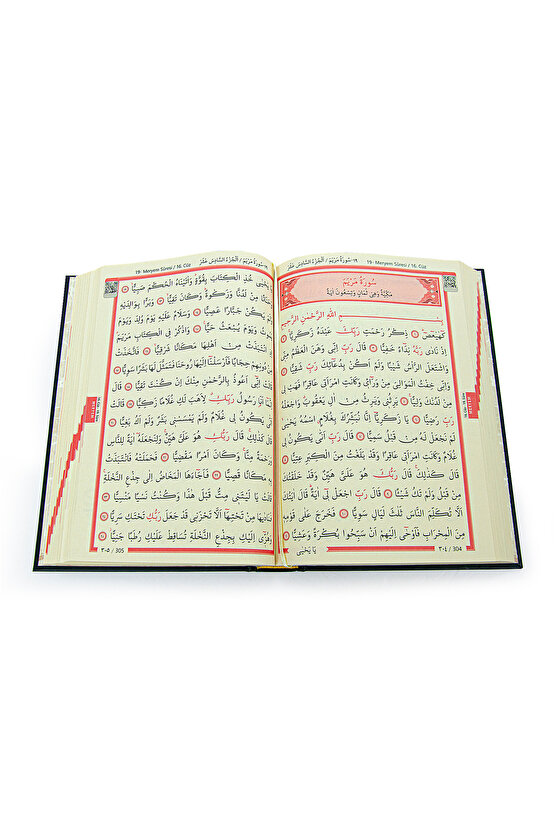 ١٩- سُورَةُ مَرْيَمَ / اَلْجُزْءُ السَّادِسَ عَشَرَ 19- Meryem Sûresi / 16. Cüz
سُورَةُ مَرْيَمَ
مَكِّيَّةٌ وَهِيَ ثَمَانٍ وَتِسْعُونَ اٰيَةً
بِسْمِ اللّٰهِ الرَّحْمٰنِ الرَّحِيمِ
كٓهٰيٰعٓصٓ ۝ ذِكْرُ رَحْمَتِ رَبِّكَ عَبْدَهُ زَكَرِيَّا ۝
اِذْ نَادٰى رَبَّهُ نِدَٓاءً خَفِيًّا ۝ قَالَ رَبِّ اِنّ۪ي وَهَنَ الْعَظْمُ مِنّ۪ي
وَاشْتَعَلَ الرَّأْسُ شَيْبًا وَلَمْ اَكُنْ بِدُعَٓائِكَ رَبِّ شَقِيًّا ۝
وَاِنّ۪ي خِفْتُ الْمَوَالِيَ مِنْ وَرَٓاء۪ي وَكَانَتِ امْرَاَت۪ي عَاقِرًا فَهَبْ ل۪ي
مِنْ لَدُنْكَ وَلِيًّا ۝ يَرِثُن۪ي وَيَرِثُ مِنْ اٰلِ يَعْقُوبَ وَاجْعَلْهُ
رَبِّ رَضِيًّا ۝ يَا زَكَرِيَّٓا اِنَّا نُبَشِّرُكَ بِغُلَامٍ اسْمُهُ يَحْيٰى
لَمْ نَجْعَلْ لَهُ مِنْ قَبْلُ سَمِيًّا ۝ قَالَ رَبِّ اَنّٰى يَكُونُ ل۪ي
غُلَامٌ وَكَانَتِ امْرَاَت۪ي عَاقِرًا وَقَدْ بَلَغْتُ مِنَ الْكِبَرِ عِتِيًّا ۝
قَالَ كَذٰلِكَ قَالَ رَبُّكَ هُوَ عَلَيَّ هَيِّنٌ وَقَدْ خَلَقْتُكَ
مِنْ قَبْلُ وَلَمْ تَكُ شَيْـًٔا ۝ قَالَ رَبِّ اجْعَلْ ل۪ٓي اٰيَةً قَالَ اٰيَتُكَ
اَلَّا تُكَلِّمَ النَّاسَ ثَلٰثَ لَيَالٍ سَوِيًّا ۝ فَخَرَجَ عَلٰى قَوْمِه۪
مِنَ الْمِحْرَابِ فَاَوْحٰٓى اِلَيْهِمْ اَنْ سَبِّحُوا بُكْرَةً وَعَشِيًّا ۝
يَا يَحْيٰى
٣٠٤ / 304
19- Meryem Sûresi / 16. Cüz ١٩- سُورَةُ مَرْيَمَ / اَلْجُزْءُ السَّادِسَ عَشَرَ
يَا يَحْيٰى خُذِ الْكِتَابَ بِقُوَّةٍ وَاٰتَيْنَاهُ الْحُكْمَ صَبِيًّا ۝
وَحَنَانًا مِنْ لَدُنَّا وَزَكٰوةً وَكَانَ تَقِيًّا ۝ وَبَرًّا بِوَالِدَيْهِ
وَلَمْ يَكُنْ جَبَّارًا عَصِيًّا ۝ وَسَلَامٌ عَلَيْهِ يَوْمَ وُلِدَ وَيَوْمَ
يَمُوتُ وَيَوْمَ يُبْعَثُ حَيًّا ۝ وَاذْكُرْ فِي الْكِتَابِ مَرْيَمَ
اِذِ انْتَبَذَتْ مِنْ اَهْلِهَا مَكَانًا شَرْقِيًّا ۝ فَاتَّخَذَتْ
مِنْ دُونِهِمْ حِجَابًا فَاَرْسَلْنَٓا اِلَيْهَا رُوحَنَا فَتَمَثَّلَ لَهَا بَشَرًا سَوِيًّا ۝
قَالَتْ اِنّ۪ٓي اَعُوذُ بِالرَّحْمٰنِ مِنْكَ اِنْ كُنْتَ تَقِيًّا ۝ قَالَ
اِنَّمَٓا اَنَا۬ رَسُولُ رَبِّكِ لِاَهَبَ لَكِ غُلَامًا زَكِيًّا ۝ قَالَتْ
اَنّٰى يَكُونُ ل۪ي غُلَامٌ وَلَمْ يَمْسَسْن۪ي بَشَرٌ وَلَمْ اَكُ بَغِيًّا ۝
قَالَ كَذٰلِكِ قَالَ رَبُّكِ هُوَ عَلَيَّ هَيِّنٌ وَلِنَجْعَلَهُٓ اٰيَةً لِلنَّاسِ
وَرَحْمَةً مِنَّا وَكَانَ اَمْرًا مَقْضِيًّا ۝ فَحَمَلَتْهُ فَانْتَبَذَتْ
بِه۪ مَكَانًا قَصِيًّا ۝ فَاَجَٓاءَهَا الْمَخَاضُ اِلٰى جِذْعِ النَّخْلَةِ
قَالَتْ يَا لَيْتَن۪ي مِتُّ قَبْلَ هٰذَا وَكُنْتُ نَسْيًا مَنْسِيًّا ۝
فَنَادٰيهَا مِنْ تَحْتِهَٓا اَلَّا تَحْزَن۪ي قَدْ جَعَلَ رَبُّكِ تَحْتَكِ سَرِيًّا ۝
وَهُزّ۪ٓي اِلَيْكِ بِجِذْعِ النَّخْلَةِ تُسَاقِطْ عَلَيْكِ رُطَبًا جَنِيًّا ۝
٣٠٥ / 305